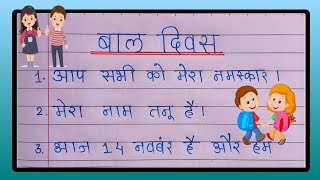 बाल दिवस
1. आप सभी को मेरा नमस्कार ।
2. मेरा नाम तनू है ।
3. आज 14 नवबंर है और हम